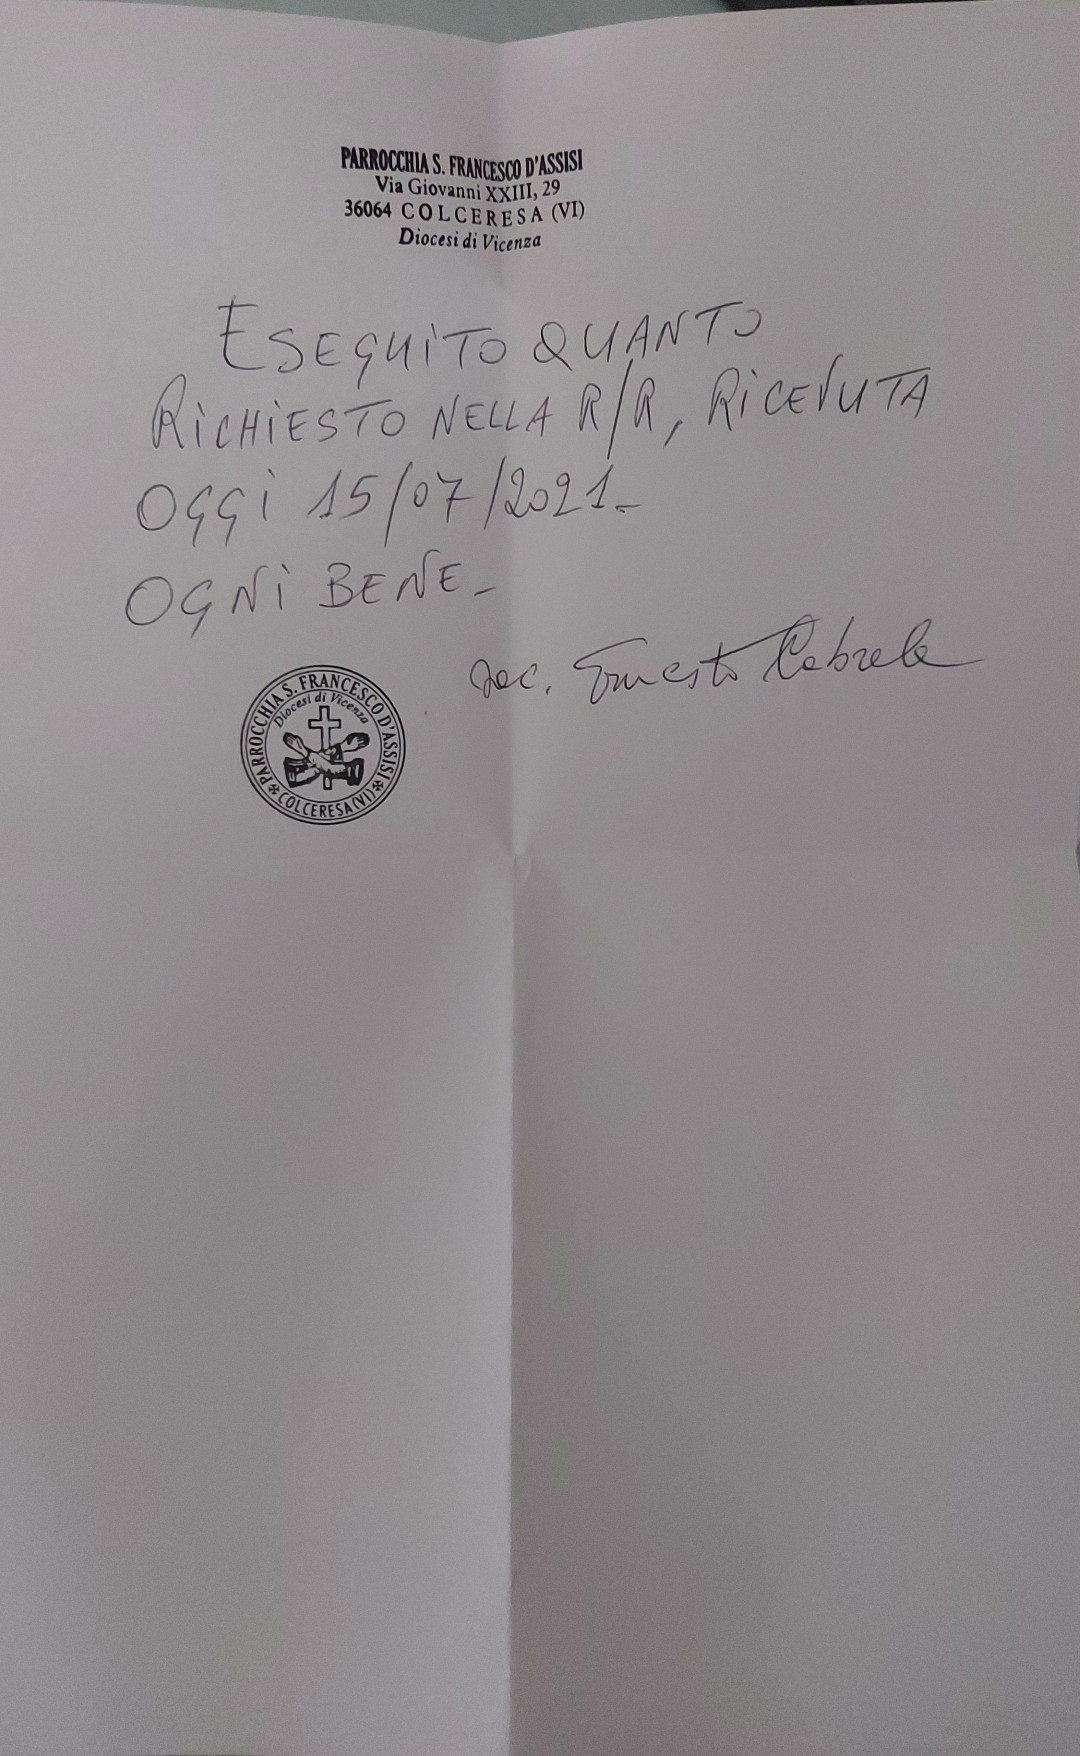 PARROCCHIA S. FRANCESCO D'ASSISI
Via Giovanni XXIII, 29
36064 COLCERESA (VI)
Diocesi di Vicenza
ESEGUITO QUANTO
RICHIESTO NELLA R/R, RICEVUTA
OGGI 15/07/2021_
OGNI BENE_
sac. Ernesto Cabrele
PARROCCHIA S. FRANCESCO D'ASSISI
Diocesi di Vicenza
COLCERESA (VI)